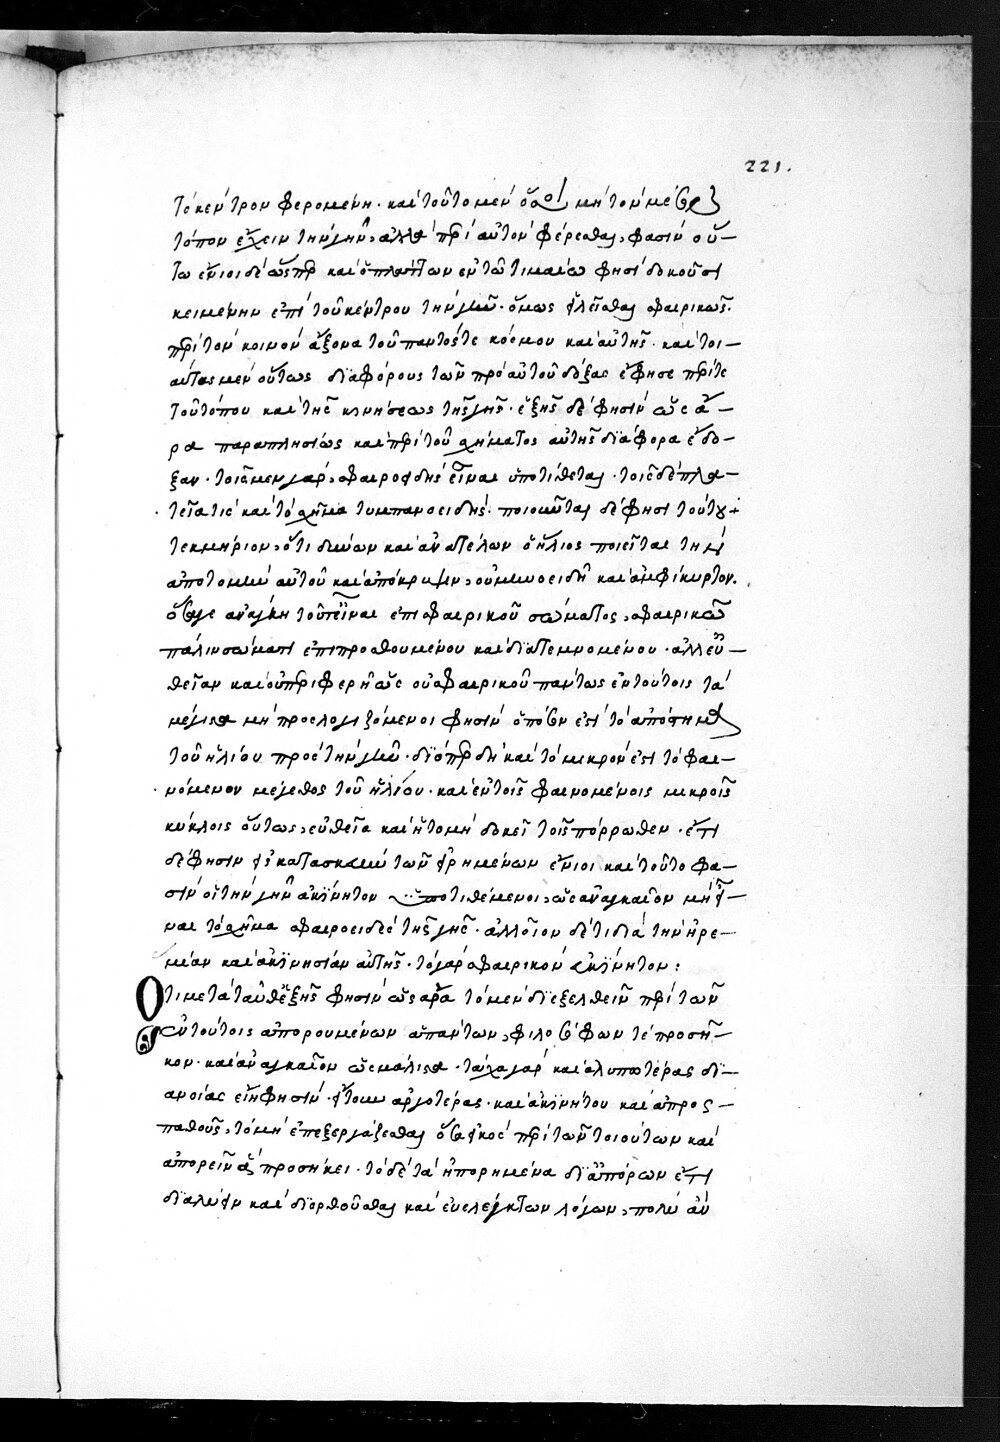 221.
τὸ κέντρον φερομένη. καὶ τοῦτο μὲν ὅσοι μὴ τὸν μέσον
τόπον ἔχειν τὴν γῆν, ἀλλὰ περὶ αὐτὸν φέρεσθαι, φασὶν οὕ-
τω ἔνιοι δὲ ὥσπερ καὶ ὁ πλάτων ἐν τῷ τιμαίω φησὶ δοκοῦσι
κειμένην ἐπὶ τοῦ κέντρου τὴν γῆν. ὅμως εἰλεῖσθαι σφαιρικῶς.
περὶ τὸν κοινὸν ἄξονα τοῦ παντός τε κόσμου καὶ αὐτῆς. καὶ τοι-
αύτας μὲν οὕτως διαφόρους τῶν πρὸ αὐτοῦ δόξας ἔφησε περί τε
τοῦ τόπου καὶ τῆς κινήσεως τῆς γῆς. ἑξῆς δέ φησὶν ὡς ἄ-
ρα παραπλησίως καὶ περὶ τοῦ σχήματος αὐτῆς διάφορα ἔδο-
ξαν. τοῖς μὲν γὰρ, σφαιροειδὴς εἶναι ὑποτίθεται. τοῖς δὲ πλα-
τεῖα τὲ καὶ τὸ σχῆμα τυμπανοειδής. ποιοῦνται δέ φησι τούτου
τεκμήριον, ὅτι δύνων καὶ ἀνατέλων ὁ ἥλιος ποιεῖται τὴν
ἀποτομὴν αὐτοῦ καὶ ἀπόκρυψιν, οὐ μηνοειδῆ καὶ ἀμφίκυρτον.
ὅπερ ἀνάγκη τοῦτ εἶναι ἐπὶ σφαιρικοῦ σώματος, σφαιρικῶ
πάλιν σώματι ἐπιπροσθουμένου καὶ διατεμνομένου. ἀλλ εὐ-
θεῖαν καὶ οὐ περιφερῆ ὡς οὐ σφαιρικοῦ πάντως ἐν τούτοις τὰ
μέγιστα μὴ προσλογιζόμενοι φησὶν ὁπόσον ἐστὶ τὸ ἀπόστημα
τοῦ ἡλίου πρὸς τὴν γῆν. διόπερ δὴ καὶ τὸ μικρόν ἐστι τὸ φαι-
νόμενον μέγεθος τοῦ ἡλίου. καὶ ἐν τοῖς φαινομένοις μικροῖς
κύκλοις οὕτως, εὐθεῖα καὶ ἡ τομὴ δοκεῖ τοῖς πόρρωθεν. ἔτι
δέ φησιν εἰς κατασκευὴν τῶν εἰρημένων ἔνιοι καὶ τοῦτο φα-
σὶν οἱ τὴν γῆν ἀκίνητον ὑποτιθέμενοι, ὡς ἀναγκαῖον μὴ εἶ-
ναι τὸ σχῆμα σφαιροειδὲς τῆς γῆς. ἀλλοῖον δέ τι διὰ τὴν ἠρε-
μίαν καὶ ἀκινησίαν αὐτῆς. τὸ γὰρ σφαιρικὸν ἀκίνητον:
Ὅτι μετὰ ταῦθ ἑξῆς φησὶν ὡς ἄρα τὸ μὲν διεξελθεῖν περὶ τῶν
ἐν τούτοις ἀπορουμένων ἁπάντων, φιλοσόφων τὲ προσῆ-
κον. καὶ ἀναγκαῖον ὡς μάλιστα. τάχα γὰρ καὶ ἀλυποτέρας δι-
ανοίας εἴη φησὶν. ἤτοι ἀργοτέρας. καὶ ἀκινήτου καὶ ἀπροσ-
παθοῦς, τὸ μὴ ἐπεξεργάζεσθαι ὅσα εἰκὸς περὶ τῶν τοιούτων καὶ
ἀπορεῖν ἃ προσήκει. τὸ δὲ τὰ ἠπορημένα δι ἀπόρων ἔτι
διαλείπειν καὶ διορθοῦσθαι καὶ εὐελέγκτων λόγων, πολὺ ἂν